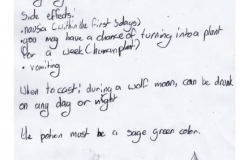 Side effects:
• nausa (within the first 3 days)
• you may have a chance of turning into a plant
for a week (human plant)
• vomiting
When to cast: during a wolf moon, can be drunk
on any day or night
the potion must be a sage green color.